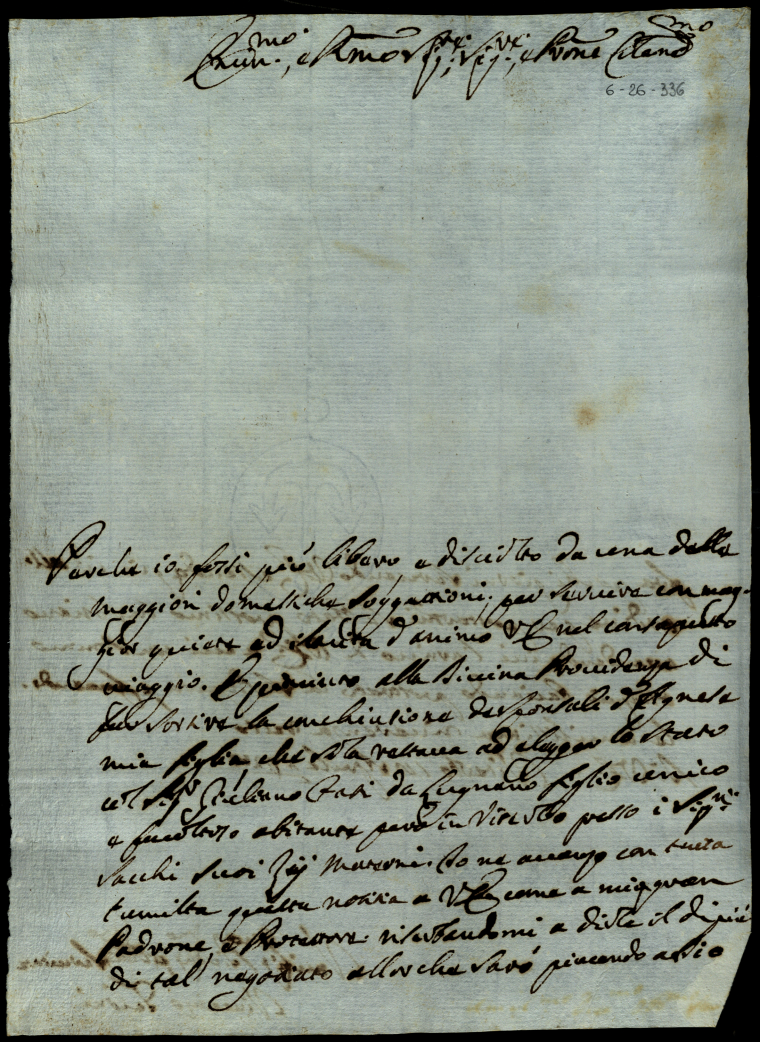 Emin.mo, e R.mo Sig.re, Sig.re, e P̃rone Colend.mo
6-26-336
Perche io fossi più libero, e disciolto da una delle
maggiori domestiche soggettioni, per servire con mag-
gior quiete ed ilarità d'animo V. E. nel consaputo
viaggio. È piaciuto alla Divina Providenza di
far sortire la conchiusione de sponsali d'Agnese
mia figlia, che sola restava ad elegger lo stato
col Sig.r Giuliano da Lugnano figlio unico
e facoltoso abitante però in Viterbo presso i Sig.ri
Sacchi suoi Zij Materni. Io ne avanzo con tutta
l'umiltà questa notitia a V. E. come a mio gran
Padrone, e Protettore riserbandomi a dirle il di più
di tal negotiato allorche sarò piacendo a Dio